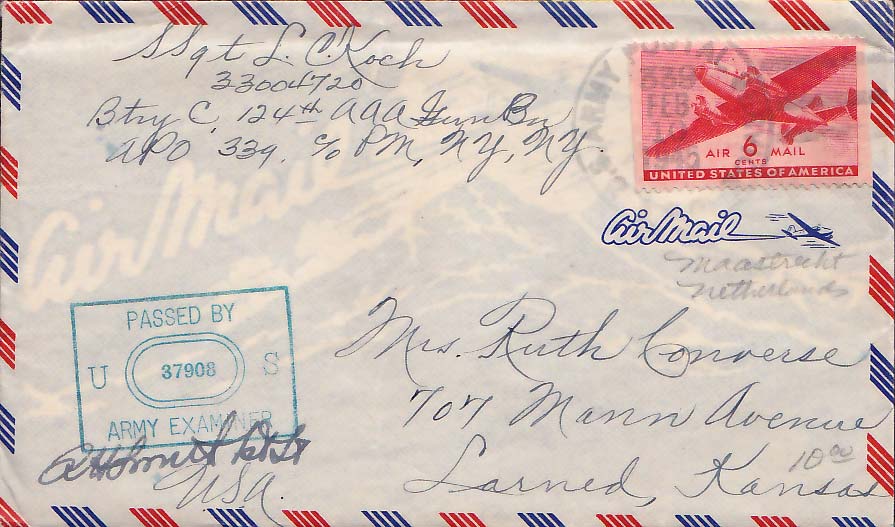 SSgt L. C. Koch
33004720
Btry C, 124th AAA Gun Bn
APO 339, c/o PM, NY, NY.
ARMY
FEB
AIR 6 MAIL
CENTS
UNITED STATES OF AMERICA
Air Mail
Air Mail
Maastrecht
Netherlands
PASSED BY
U 37908 S
ARMY EXAMINER
USA
Mrs. Ruth Converse
707 Mann Avenue
Larned, Kansas
10.00